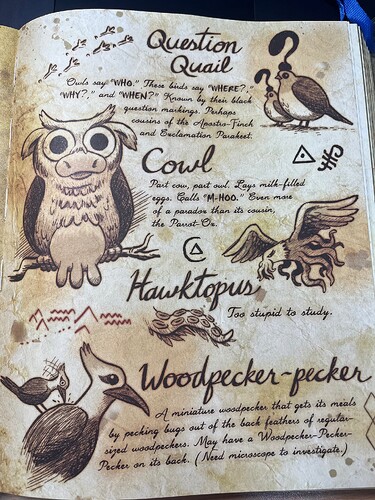 Question
Quail
Owls say "WHO." These birds say "WHERE?,"
"WHY?," and "WHEN?" Known by their black
question markings. Perhaps
cousins of the Apostro-Finch
and Exclamation Parakeet.
Cowl
Part cow, part owl. Lays milk-filled
eggs. Calls "M-HOO." Even more
of a paradox than its cousin,
the Parrot-Ox.
Hawktopus
Too stupid to study.
Woodpecker-pecker
A miniature woodpecker that gets its meals
by pecking bugs out of the back feathers of regular-
sized woodpeckers. May have a Woodpecker-Pecker-
Pecker on its back. (Need microscope to investigate.)